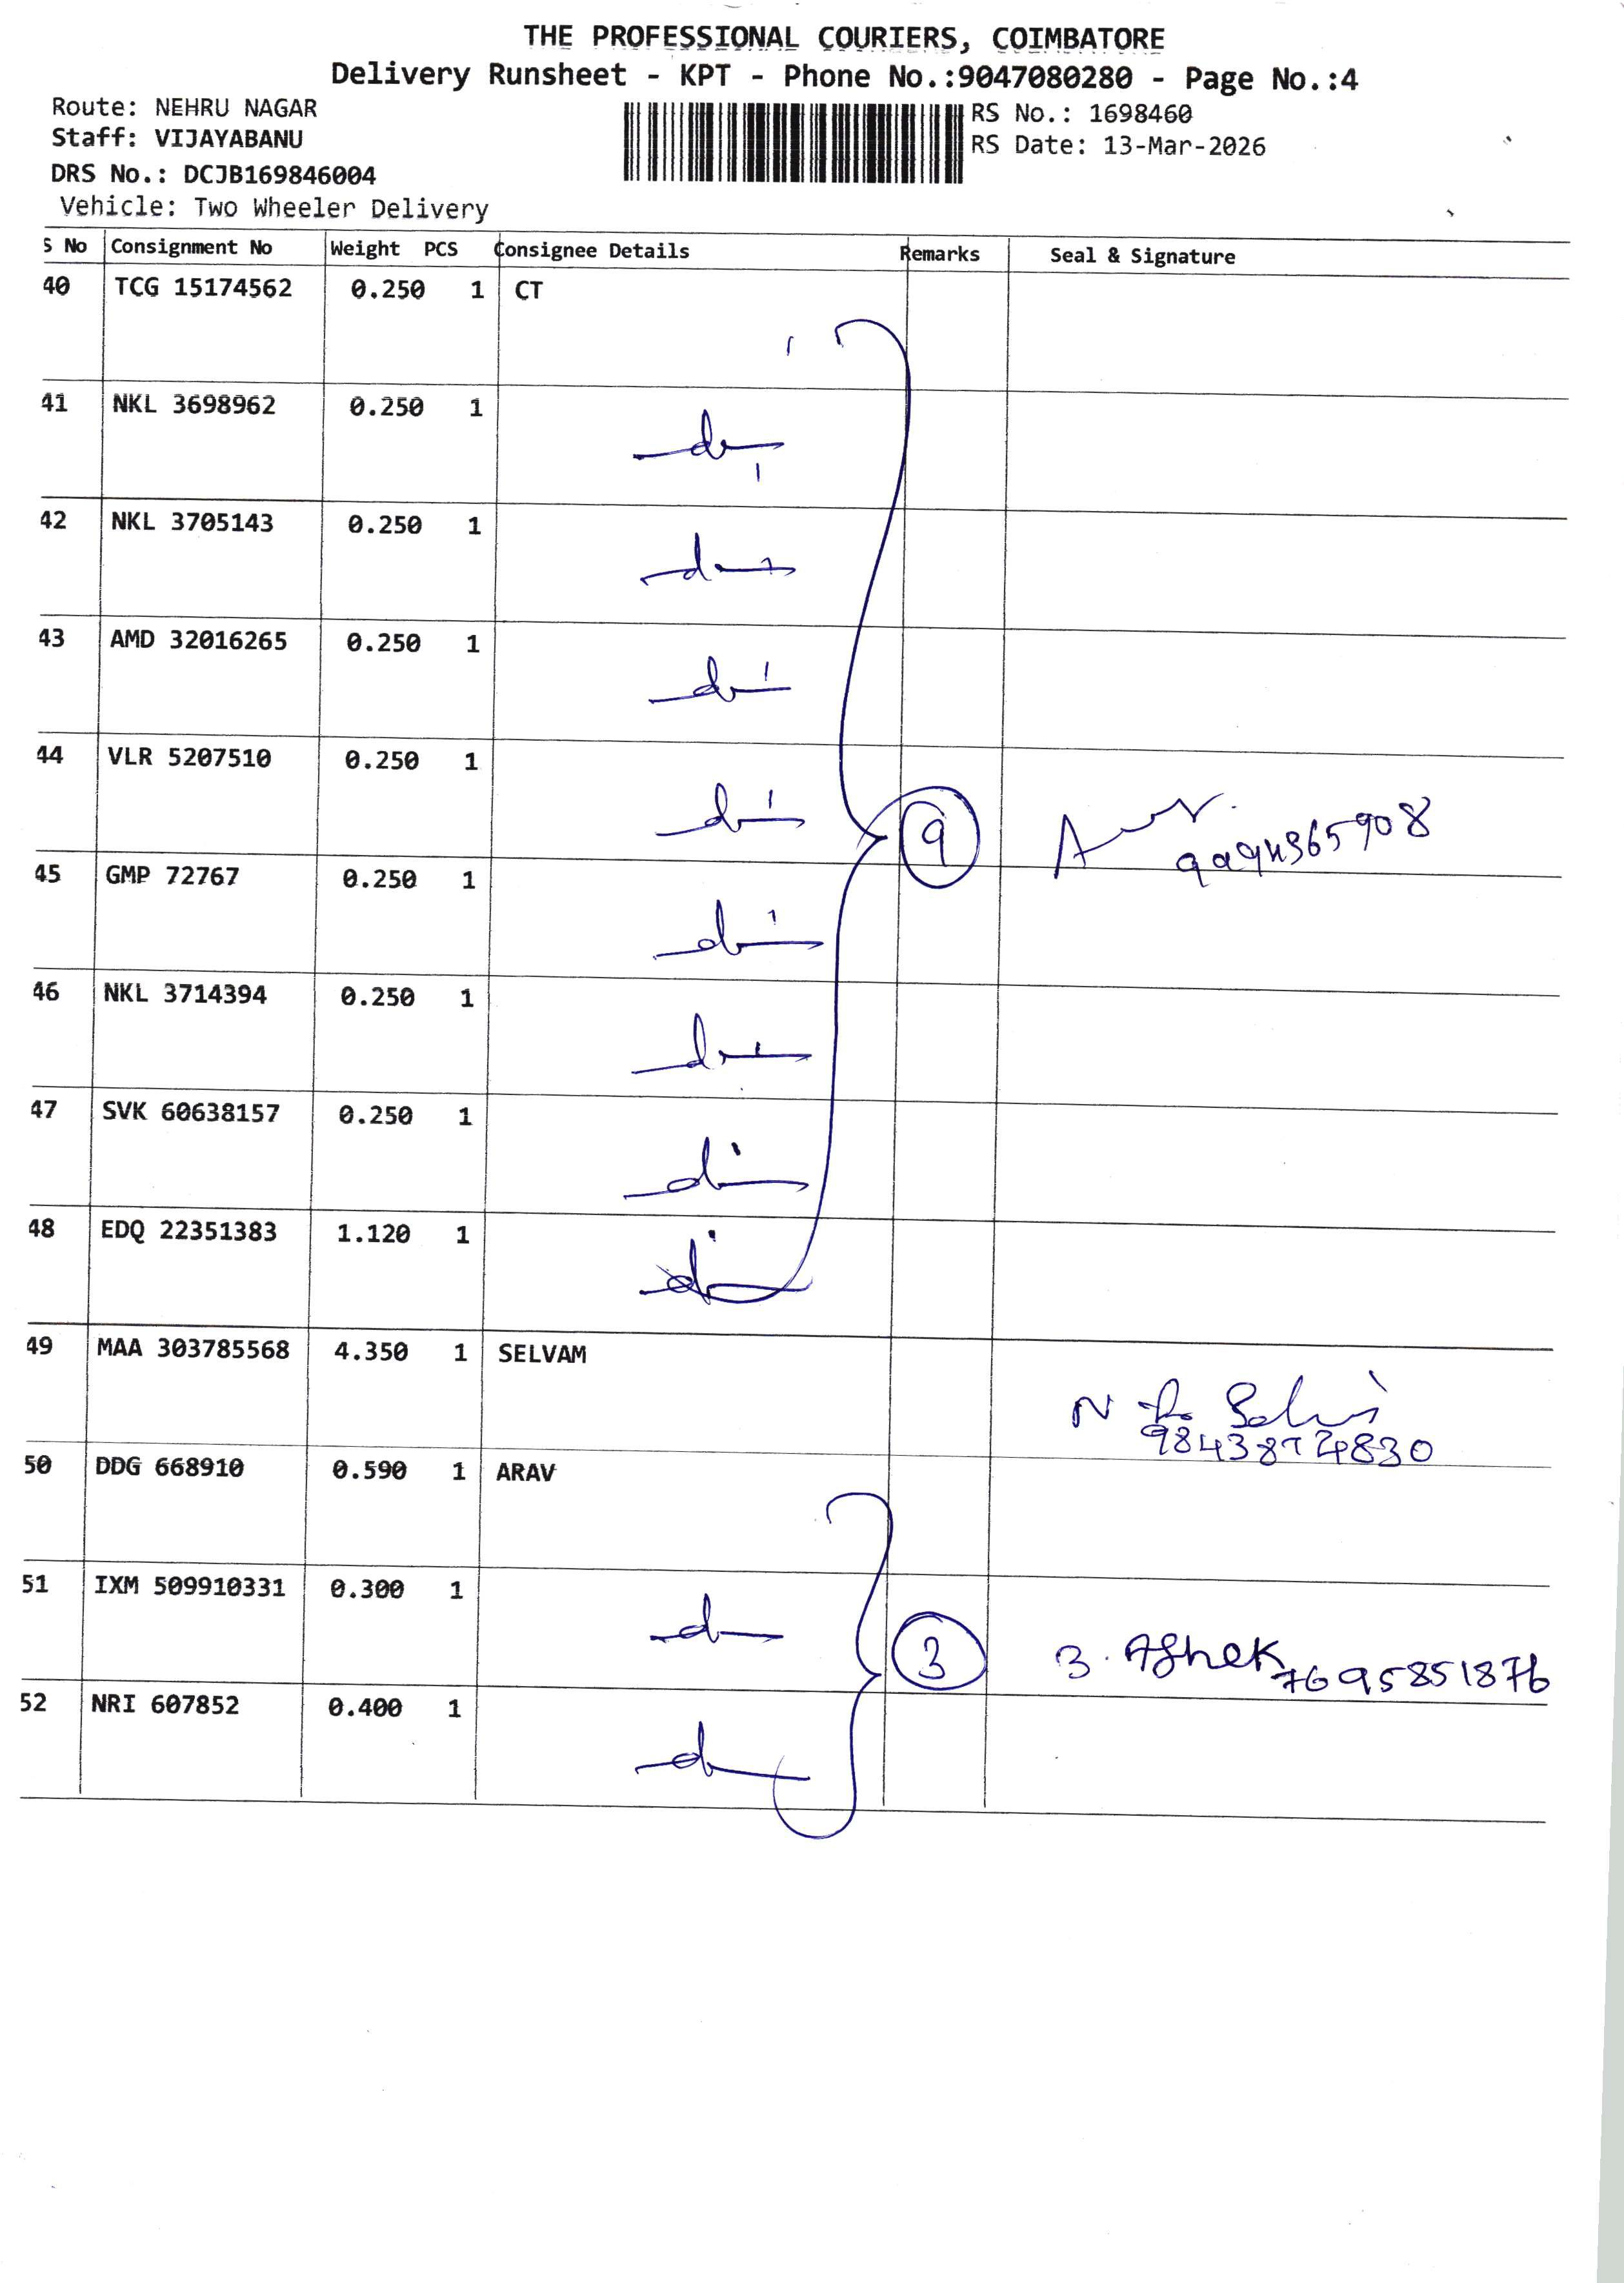 THE PROFESSIONAL COURIERS, COIMBATORE
Delivery Runsheet - KPT - Phone No.:9047080280 - Page No.:4
Route: NEHRU NAGAR
RS No.: 1698460
Staff: VIJAYABANU
RS Date: 13-Mar-2026
DRS No.: DCJB169846004
Vehicle: Two Wheeler Delivery
S No Consignment No Weight PCS Consignee Details Remarks Seal & Signature
40 TCG 15174562 0.250 1 CT
41 NKL 3698962 0.250 1
42 NKL 3705143 0.250 1
43 AMD 32016265 0.250 1
44 VLR 5207510 0.250 1
9
45 GMP 72767 0.250 1
46 NKL 3714394 0.250 1
47 SVK 60638157 0.250 1
48 EDQ 22351383 1.120 1
49 MAA 303785568 4.350 1 SELVAM
50 DDG 668910 0.590 1 ARAV
51 IXM 509910331 0.300 1
3
7695851876
52 NRI 607852 0.400 1